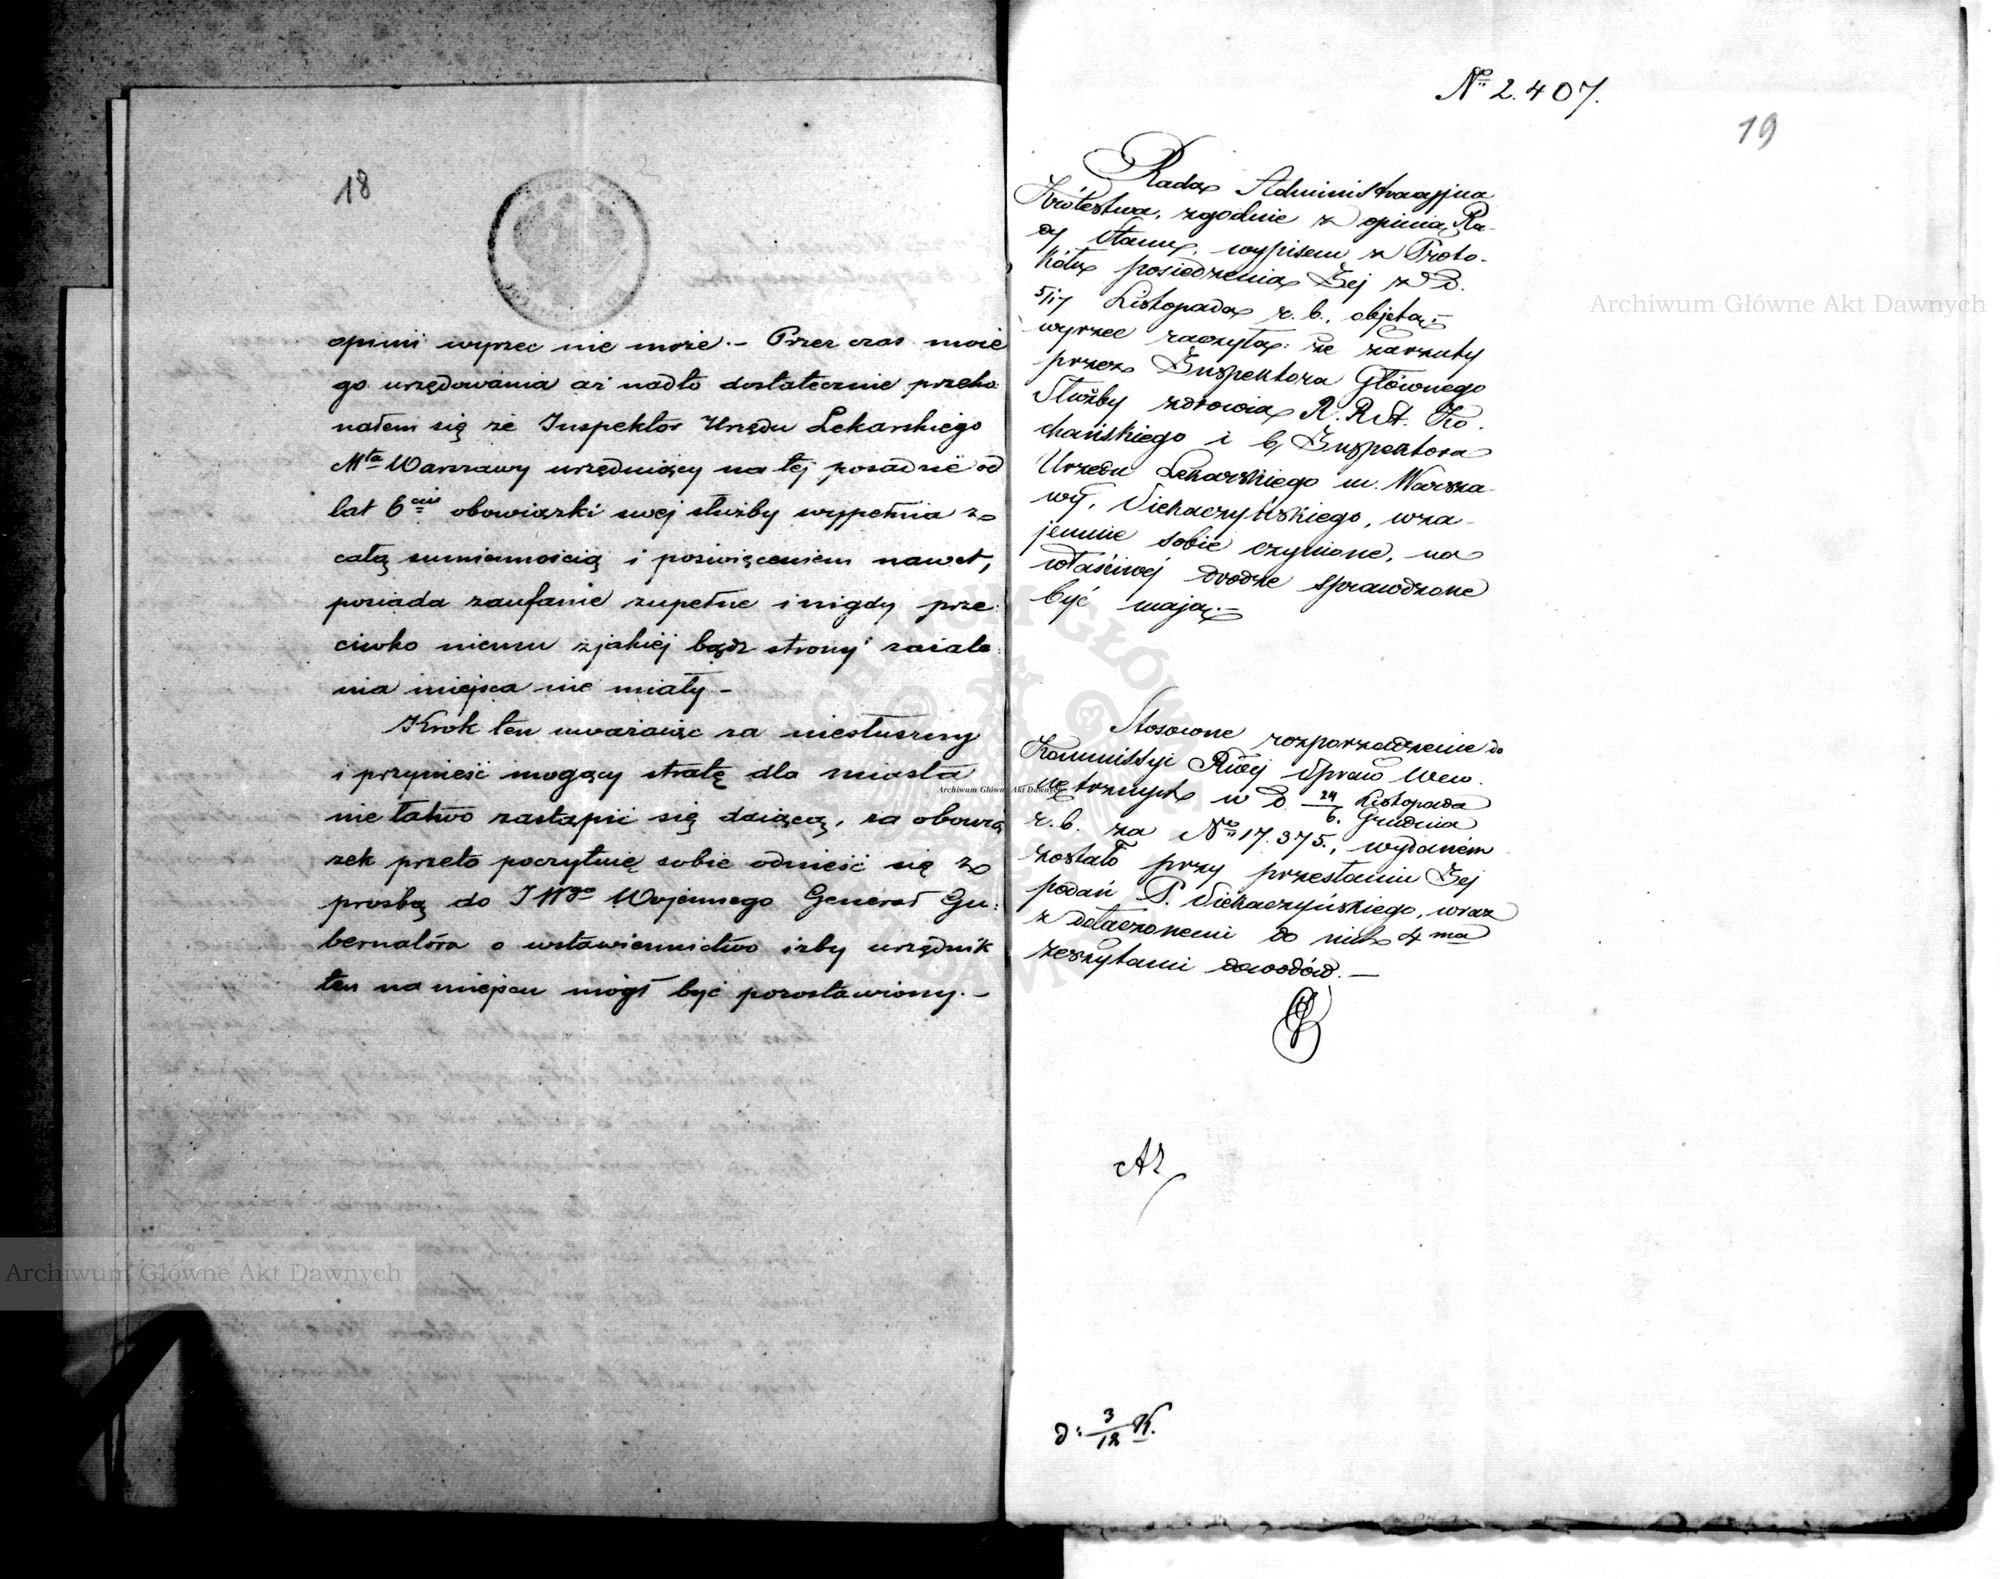 18
opinii wyrzec nie może.- Przez czas moie
go urzędowania aż nadto dostatecznie przeko
nałem się że Inspektor Urzędu Lekarskiego
Mta Warszawy urzędujący na tej posadzie od
lat 6ciu obowiązki swej służby wypełnia z
całą sumiennością i poświęceniem nawet,
posiada zaufanie zupełne i nigdy prze:
ciwko niemu z jakiéj bądź strony zażale
nia miejsca nie miały -
Krok ten uważając za niesłuszny
i przynieść mogący stratę dla miasta
nie łatwo zastąpić się dającą, za obowią
zek przeto poczytuję sobie odnieść się z
prośbą do JWgo Wojennego Generał Gu:
bernatóra o wstawiennictwo iżby urzędnik
ten na miejscu mógł być pozostawiony.-
No 2.407.
19
Rada Administracyjna
Królestwa, zgodnie z opinią Ra-
dy Stanu, wypisem z Proto-
kółu posiedzenia Jej z D.
5/17 Listopada r. b., objętą,
wyrzec raczyła: że zarzuty
przez Inspektora Głównego
Służby zdrowia R. R. St. Ko
chańskiego i b. Inspektora
Urzędu Lekarskiego m. Warsza-
wy, Siekaczyńskiego, wza-
jemnie sobie czynione, na
właściwej drodze sprawdzone
być mają.-
Stosowne rozporządzenie do
Kommissyi Rząej Spraw Wew.
nętrznych w D. 24/6. Listopada/Grudnia
r. b. za No 17.375., wydaniem
zostało przy przesłaniu Jej
podań P. Siekaczyńskiego, wraz
z dołączonemi do nich 4ma
zeszytami dowodów.-
d: 3/12
Archiwum Główne Akt Dawnych
Archiwum Główne Akt Dawnych
Archiwum Główne Akt Dawnych